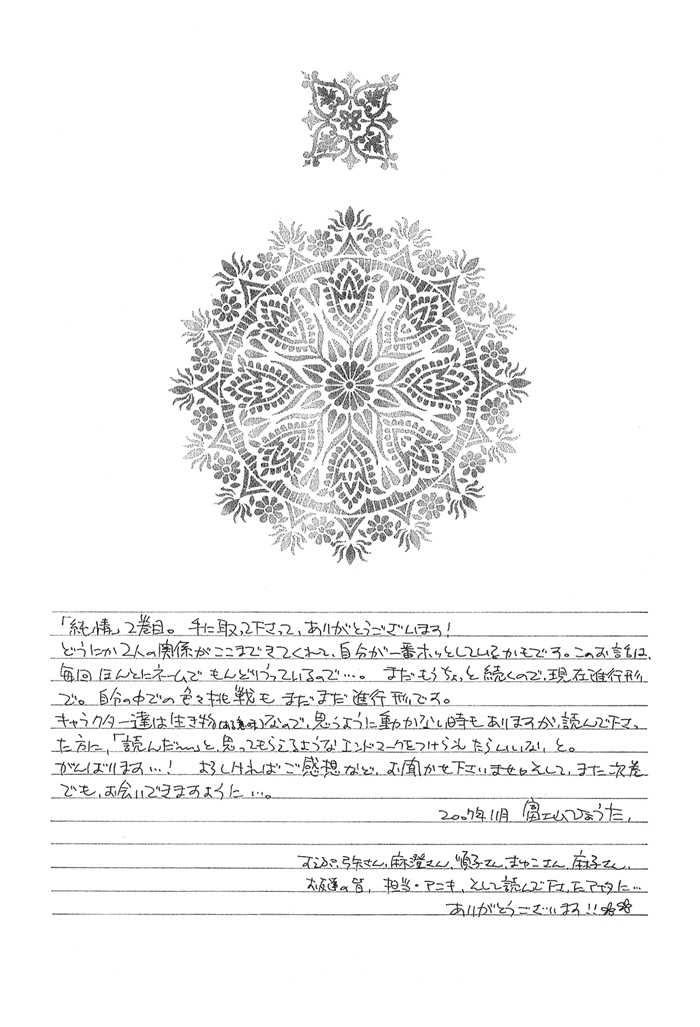 「純情」2巻目。手に取って下さって、ありがとうございます!
どうにか2人の関係がここまできてくれて、自分が一番ホッとしているかもです。このお話は、
毎回ほんとにネームでもんどりうっているので…。まだもうちょっと続くので、現在進行形
で。自分の中での色々挑戦もまだまだ進行形です。
キャラクター達は生き物(ある意味)なので、思うように動かない時もありますが、読んで下さっ
た方に、「読んだ〜」と思ってもらえるようなエンドマークをつけられたらいいな、と。
がんばります…! よろしければご感想など、お聞かせ下さいませ。そして、また次巻
でも、お会いできますように…。
2007年11月 富士山ひょうた
弥さん、麻澄さん、順子さん、まゆこさん、麻子さん、
お友達の皆、担当・アニキ、そして読んで下さったアナタに…
ありがとうございます!!